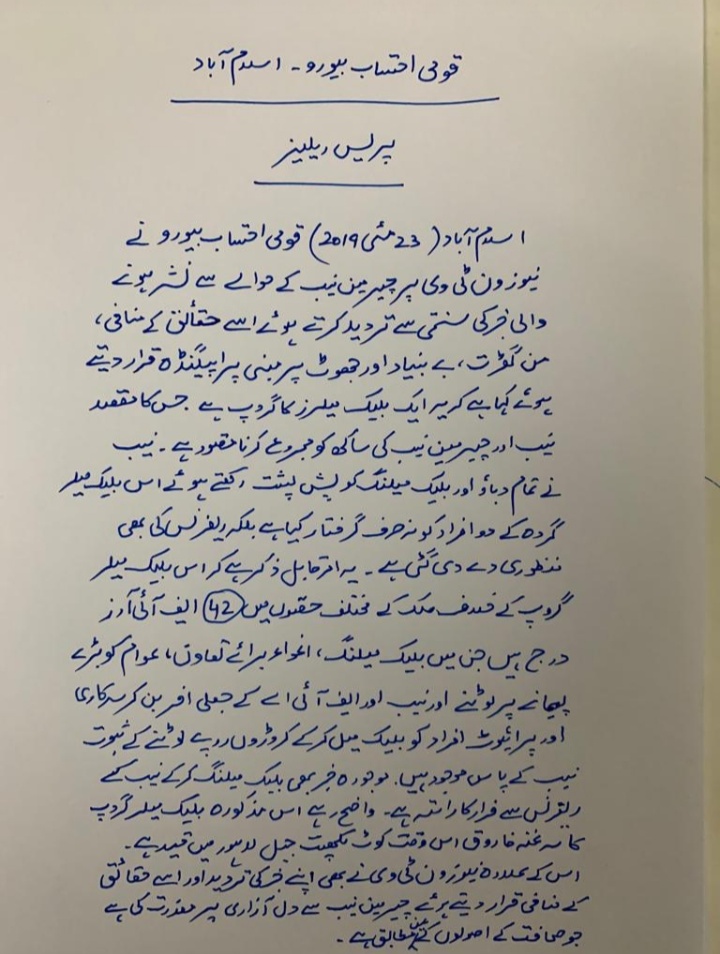 قومی احتساب بیورو - اسلام آباد
پریس ریلیز
اسلام آباد (23 مئی 2019) قومی احتساب بیورو نے
نیوز ون ٹی وی پر چیرمین نیب کے حوالے سے نشر ہونے
والی خبر کی سختی سے تردید کرتے ہوئے اسے حقائق کے منافی،
من گھڑت، بے بنیاد اور جھوٹ پر مبنی پراپیگنڈہ قرار دیتے
ہوئے کہا ہے کہ یہ ایک بلیک میلرز کا گروپ ہے جس کا مقصد
نیب اور چیرمین نیب کی ساکھ کو مجروح کرنا مقصود ہے۔ نیب
نے تمام دباؤ اور بلیک میلنگ کو پس پشت رکھتے ہوئے اس بلیک میلر
گروہ کے دو افراد کو نہ صرف گرفتار کیا ہے بلکہ ریفرنس کی بھی
منظوری دے دی گئی ہے۔ یہ امر قابل ذکر ہے کہ اس بلیک میلر
گروپ کے خلاف ملک کے مختلف حصوں میں 42 ایف آئی آرز
درج ہیں جن میں بلیک میلنگ، اغواء برائے تعاون، عوام کو بڑے
پیمانے پر لوٹنے اور نیب اور ایف آئی اے کے جعلی افسر بن کر سرکاری
اور پرائیوٹ افراد کو بلیک میل کر کے کروڑوں روپے لوٹنے کے ثبوت
نیب کے پاس موجود ہیں. موجودہ خبر بھی بلیک میلنگ کر کے نیب کے
ریفرنس سے فرار کا راستہ ہے۔ واضح رہے اس مذکورہ بلیک میلر گروپ
کا سرغنہ فاروق اس وقت کوٹ لکھپت جیل لاہور میں قید ہے۔
اس کے علاوہ نیوز ون ٹی وی نے بھی اپنے خبر کی تردید اور اسے حقائق
کے منافی قرار دیتے ہوئے چیرمین نیب سے دل آزاری پر معذرت کی ہے
جو صحافت کے اصولوں کے عین مطابق ہے۔